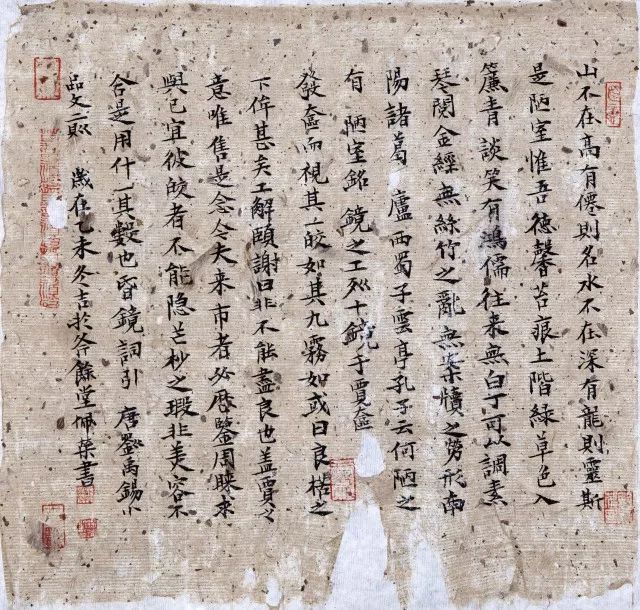 山不在高有僊則名水不在深有龍則靈斯
是陋室惟吾德馨苔痕上階綠草色入
簾青談笑有鴻儒往来無白丁可以調素
琴閱金經無絲竹之亂無案牘之勞形南
陽諸葛廬西蜀子雲亭孔子云何陋之
有 陋室銘 鏡之工列十鏡于賈奩
發奩而視其一皎如其九霧如或曰良楛之
不侔甚矣工解頤謝曰非不能盡良也盖賈之
意唯售是念今夫来市者必歷鑒周睞求
與已宜彼皎者不能隐芒杪之瑕非美容不
合是用什一其數也昏鏡詞引 唐劉禹錫小
品文二則 歲在乙未冬吉於斧餘堂佩葉書